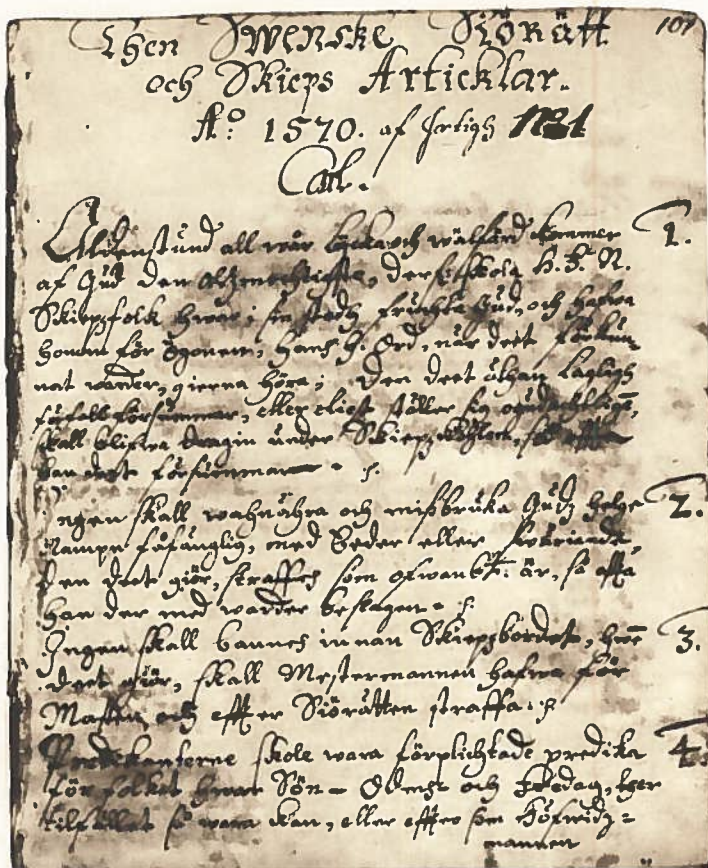 107
Then Swenske Siörätt
och Skieps Articklar.
Aº 1570. af
Cap.
Aldenstund all wår lycka och wälfärd kommer 1.
af Gud den Alzmechtigste, derföre skola K. M.
Skiepzfolk hwar i sin stadh fruchta Gud, och hafwa
honom för ögonen, Hans H. Ord, när deet förkun-
nat warder, gierna höra; Den deet uthan lagligh
förfall försummar, eller eliest ställer sig ogudachtligit,
skall blifwa dragin under Skiepz, så offta
han deet försummar.
Ingen skall wahnähra och missbruka Gudz helge 2.
Nampn fåfänglig, med Eeder eller Swäriande,
den deet giör, straffes som ofwanbt: är, så offta
han der med warder beslagen.
Ingen skall bannes innan Skiepzbordet, hwem 3.
deet giör, skall Mestermannen hafwa för
Masten, och effter Siörätten straffa.
Predikanterne skole wara förplichtade predika 4.
för folket hwar Sön- Odens- och Fredag, ther
tilfället så wara kan, eller effter som Höfwidz=
mannen